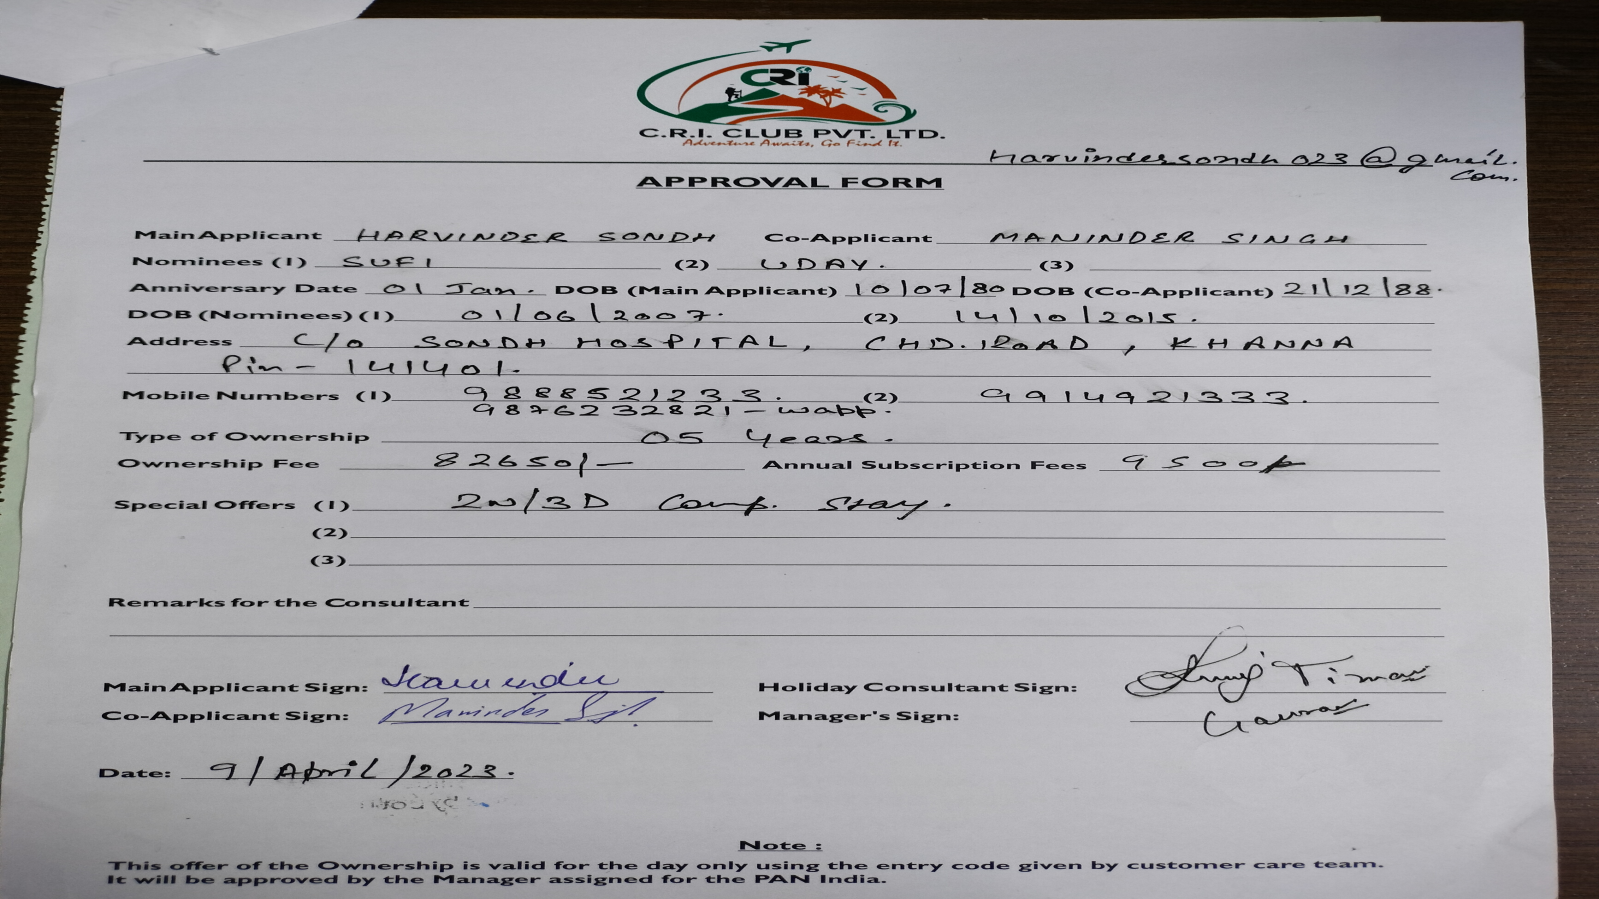 CRI
C.R.I. CLUB PVT. LTD.
Adventure Awaits, Go Find It.
Harvindersondh023@gmail.
com.
APPROVAL FORM
Main Applicant HARVINDER SONDH Co-Applicant MANINDER SINGH
Nominees (1) SUFI (2) UDAY. (3)
Anniversary Date 01 Jan. DOB (Main Applicant) 10/07/80 DOB (Co-Applicant) 21/12/88.
DOB (Nominees) (1) 01/06/2007. (2) 14/10/2015.
Address C/o SONDH HOSPITAL, CHD. ROAD, KHANNA
Pin - 141401.
Mobile Numbers (1) 9888521233. (2) 9914921333.
9876232821 - wapp.
Type of Ownership 05 Years.
Ownership Fee 82650/- Annual Subscription Fees 9500/-
Special Offers (1) 2N/3D Comp. Stay.
(2)
(3)
Remarks for the Consultant
Main Applicant Sign: Harvinder Holiday Consultant Sign:
Co-Applicant Sign: Maninder Manager's Sign: Gaurav
Date: 9/April/2023.
Note :
This offer of the Ownership is valid for the day only using the entry code given by customer care team.
It will be approved by the Manager assigned for the PAN India.